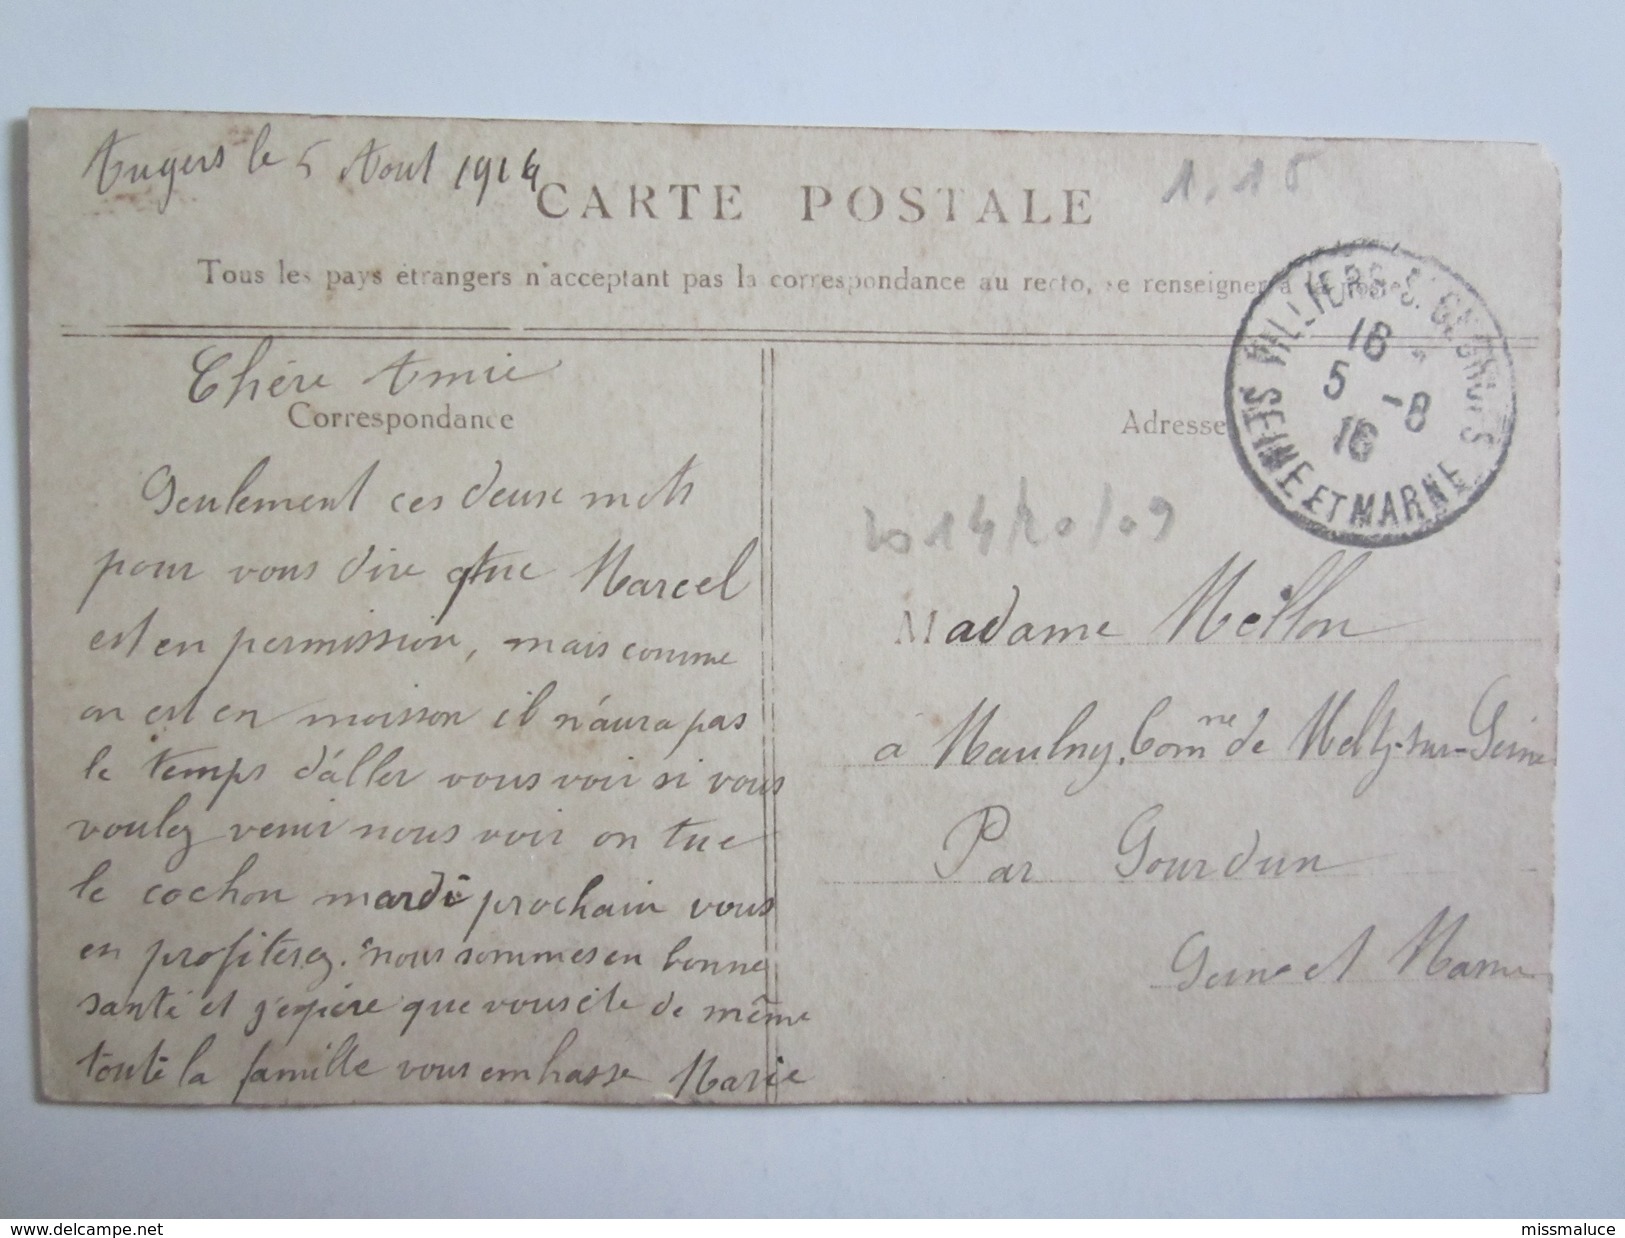 Augers le 5 Aout 1916
CARTE POSTALE
1.15
Tous les pays étrangers n'acceptant pas la correspondance au recto, se renseigner à la poste
VILLIERS-S. GEORGES
SEINE ET MARNE
16
5 -8
16
Chère Amie
Correspondance
Seulement ces deux mots
pour vous dire que Marcel
est en permission, mais comme
on est en moisson il n'aura pas
le temps d'aller vous voir si vous
voulez venir nous voir on tue
le cochon mardi prochain vous
en profiterez. nous sommes en bonne
santé et j'espère que vous ete de même
toute la famille vous embasse Marie
Adresse
14/20/09
Madame Mellon
à Maulny, Comne de Meltz-sur-Seine
Par Gourdun
Seine et Marne
www.delcampe.net
missmaluce